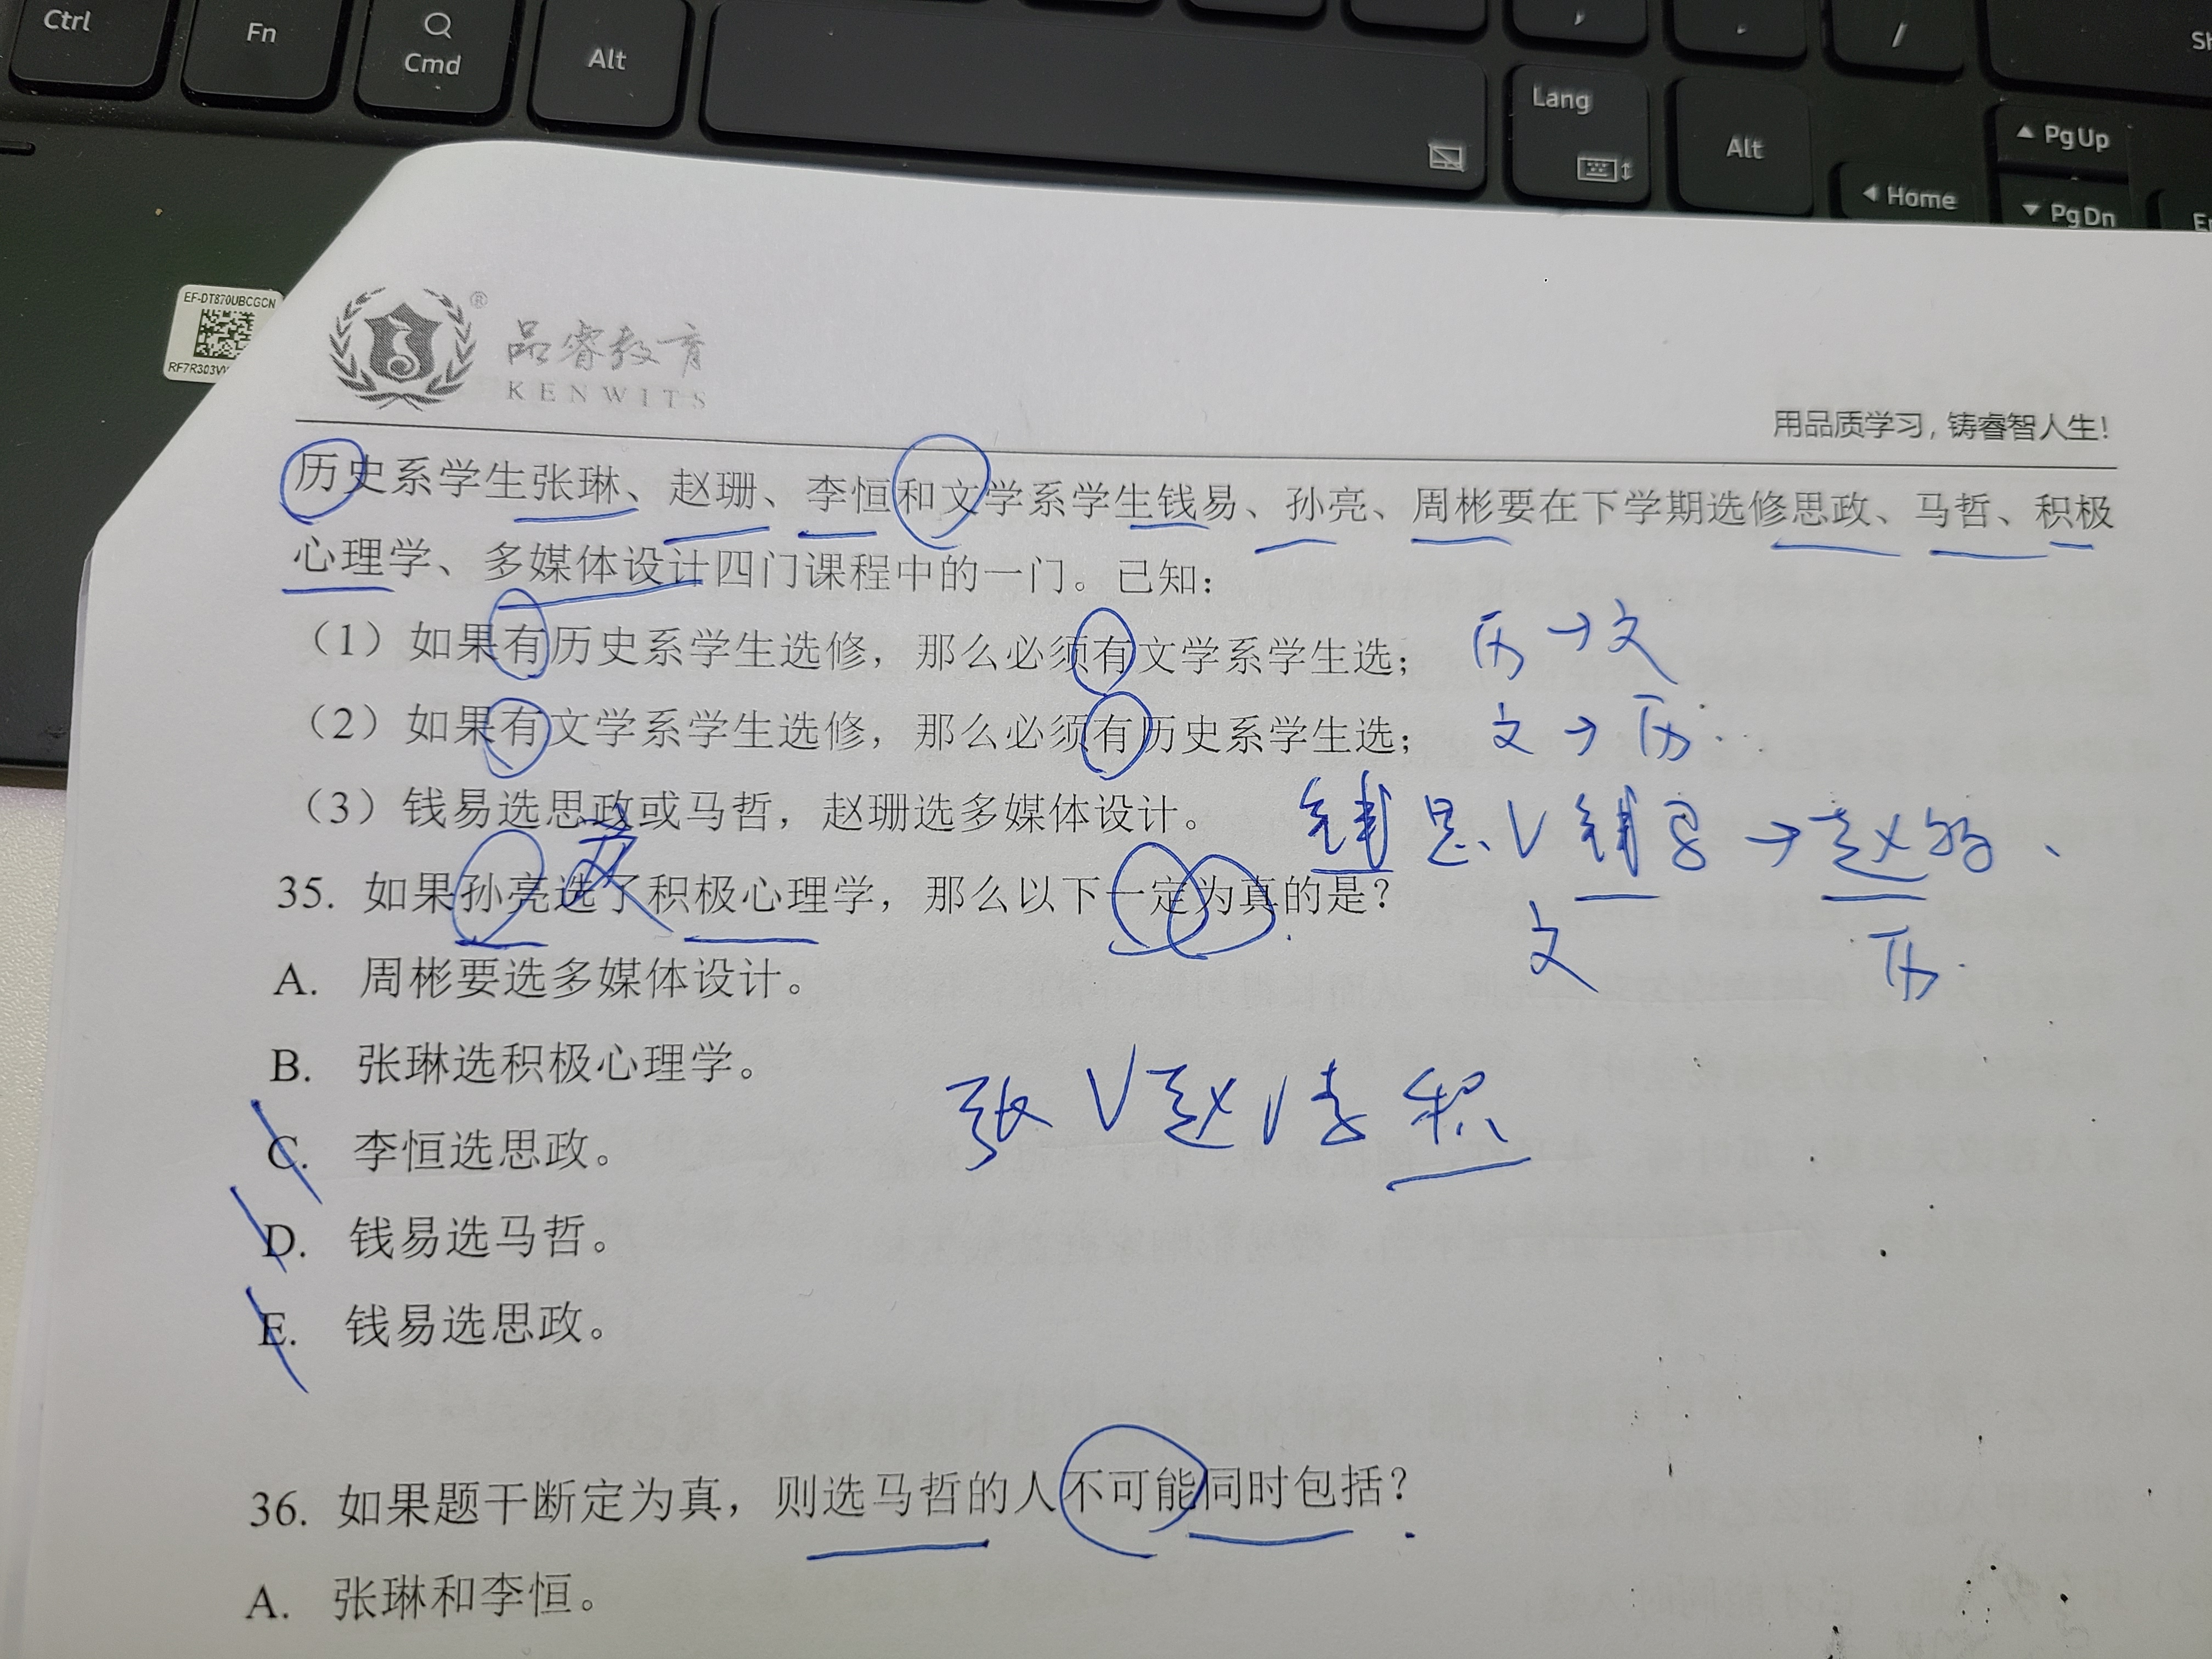 Ctrl
Fn
Cmd
Alt
Lang
Alt
▲ PgUp
◀ Home
▼ PgDn
EF-DT870UBCGCN
品睿教育
KENWITS
用品质学习,铸睿智人生!
历史系学生张琳、赵珊、李恒和文学系学生钱易、孙亮、周彬要在下学期选修思政、马哲、积极
心理学、多媒体设计四门课程中的一门。已知:
(1)如果有历史系学生选修,那么必须有文学系学生选; 历→文
(2)如果有文学系学生选修,那么必须有历史系学生选; 文→历
(3)钱易选思政或马哲,赵珊选多媒体设计。 钱思∨钱马→赵多
35. 如果孙亮选了积极心理学,那么以下一定为真的是?
文
文 历
A. 周彬要选多媒体设计。
B. 张琳选积极心理学。
张∨赵∨李积
C. 李恒选思政。
D. 钱易选马哲。
E. 钱易选思政。
36. 如果题干断定为真,则选马哲的人不可能同时包括?
A. 张琳和李恒。